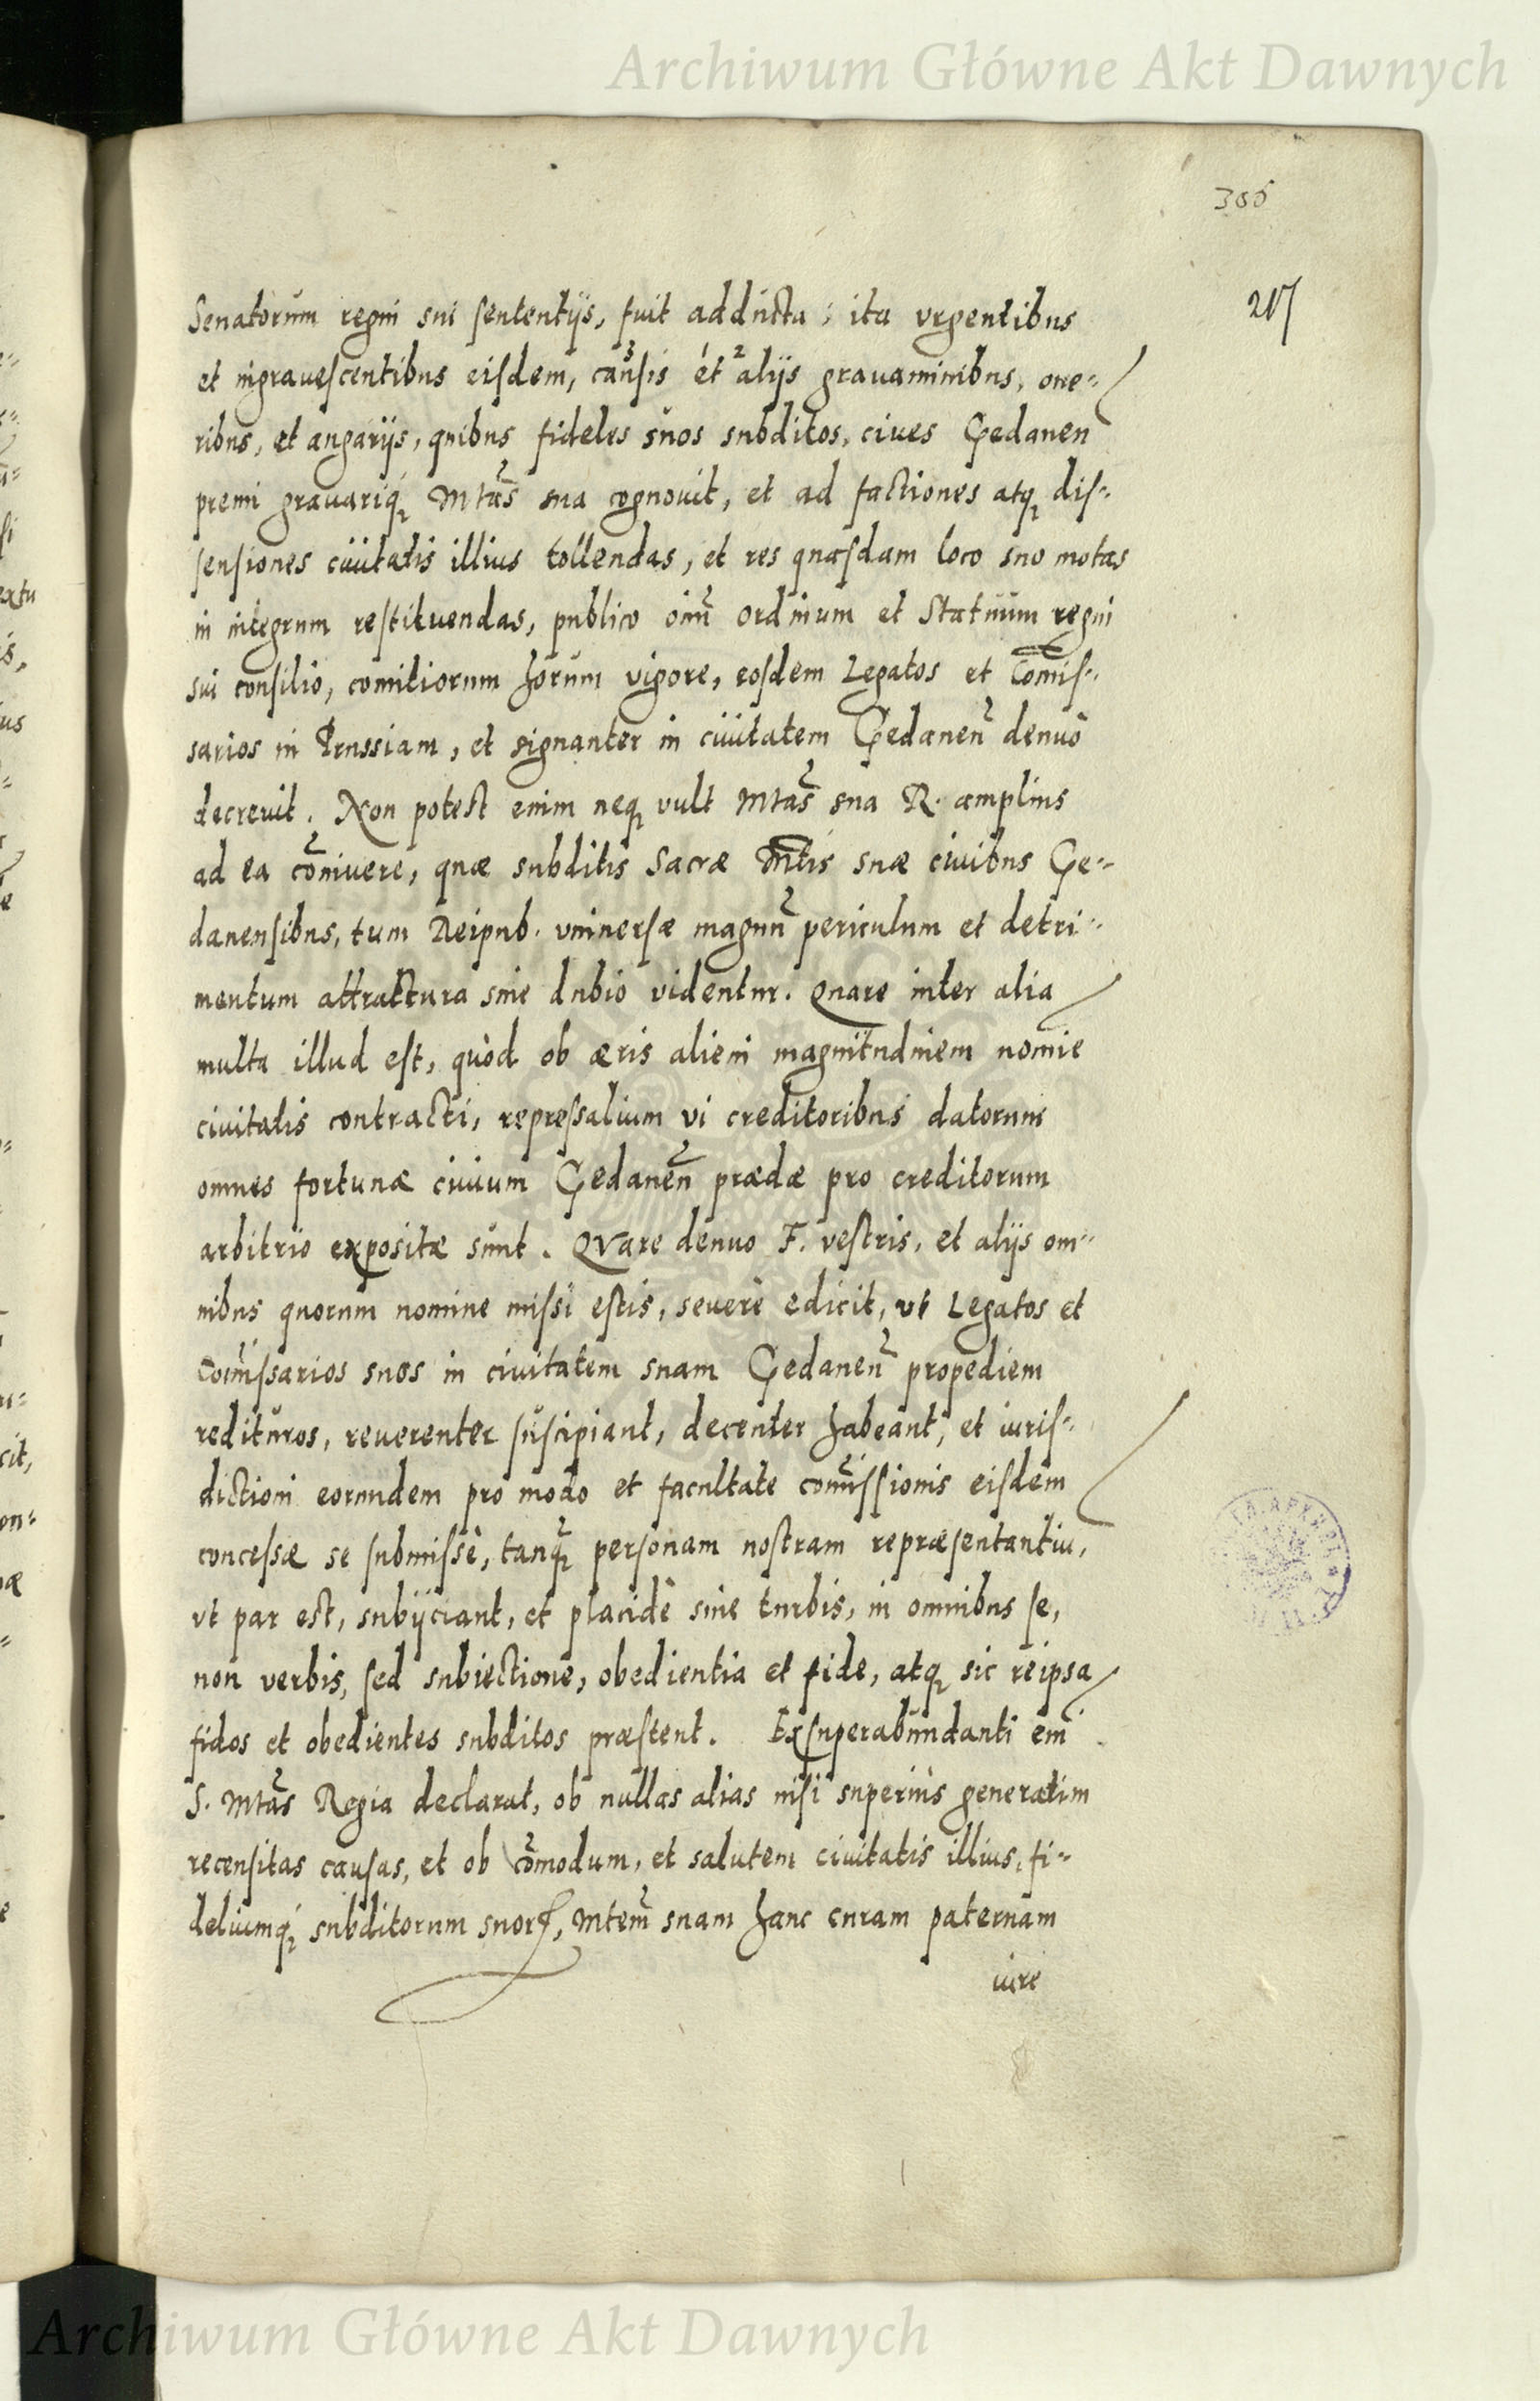 Archiwum Główne Akt Dawnych
305
217
Senatorum regni sui sententijs, fuit adducta; ita vrgentibus
et ingravescentibus eisdem, causis et alijs gravaminibus, one=
ribus, et angarijs, quibus fideles suos subditos, cives Gedanen
premi gravariq́ Mtas sua cognovit, et ad factiones atq dis=
sensiones civitatis illius tollendas, et res quasdam loco suo motas
in integrum restituendas, publico oim̄ ordinum et Statuum regni
sui consilio, comitiorum horum vigore, eosdem Legatos et Com̄is=
sarios in Prussiam, et signanter in civitatem Gedanen̄ denuò
decrevit. Non potest enim neq vult Mtas sua R. amplius
ad ea cōnivere, quæ subditis Sacræ Mtis suæ civibus Ge=
danensibus, tum Reipub. vniversæ magnū periculum et detri=
mentum attractura sine dubio videntur. Quare inter alia
multa illud est, quòd ob æris alieni magnitudinem nomine
civitatis contracti, repressalium vi creditoribus datorum
omnes fortunæ civium Gedanen̄ prædæ pro creditorum
arbitrio expositæ sunt. Quare denuo F. vestris, et alijs om=
nibus quorum nomine missi estis, severè edicit, vt Legatos et
Com̄issarios suos in civitatem suam Gedanen̄ propediem
redituros, reverenter suscipiant, decenter habeant, et iuris=
dictioni eorundem pro modo et facultate com̄issionis eisdem
concessæ se submissè, tanq̄ personam nostram repræsentantiū,
vt par est, subijciant, et placidè sine turbis, in omnibus se,
non verbis, sed subiectione, obedientia et fide, atq sic reipsa
fidos et obedientes subditos præstent. Exsuperabundanti em̄
S. Mtas Regia declarat, ob nullas alias nisi superius generatim
recensitas causas, et ob cōmodum, et salutem civitatis illius, fi=
deliumq́ subditorum suorꝝ, Mtem̄ suam hanc curam paternam
iure
Archiwum Główne Akt Dawnych